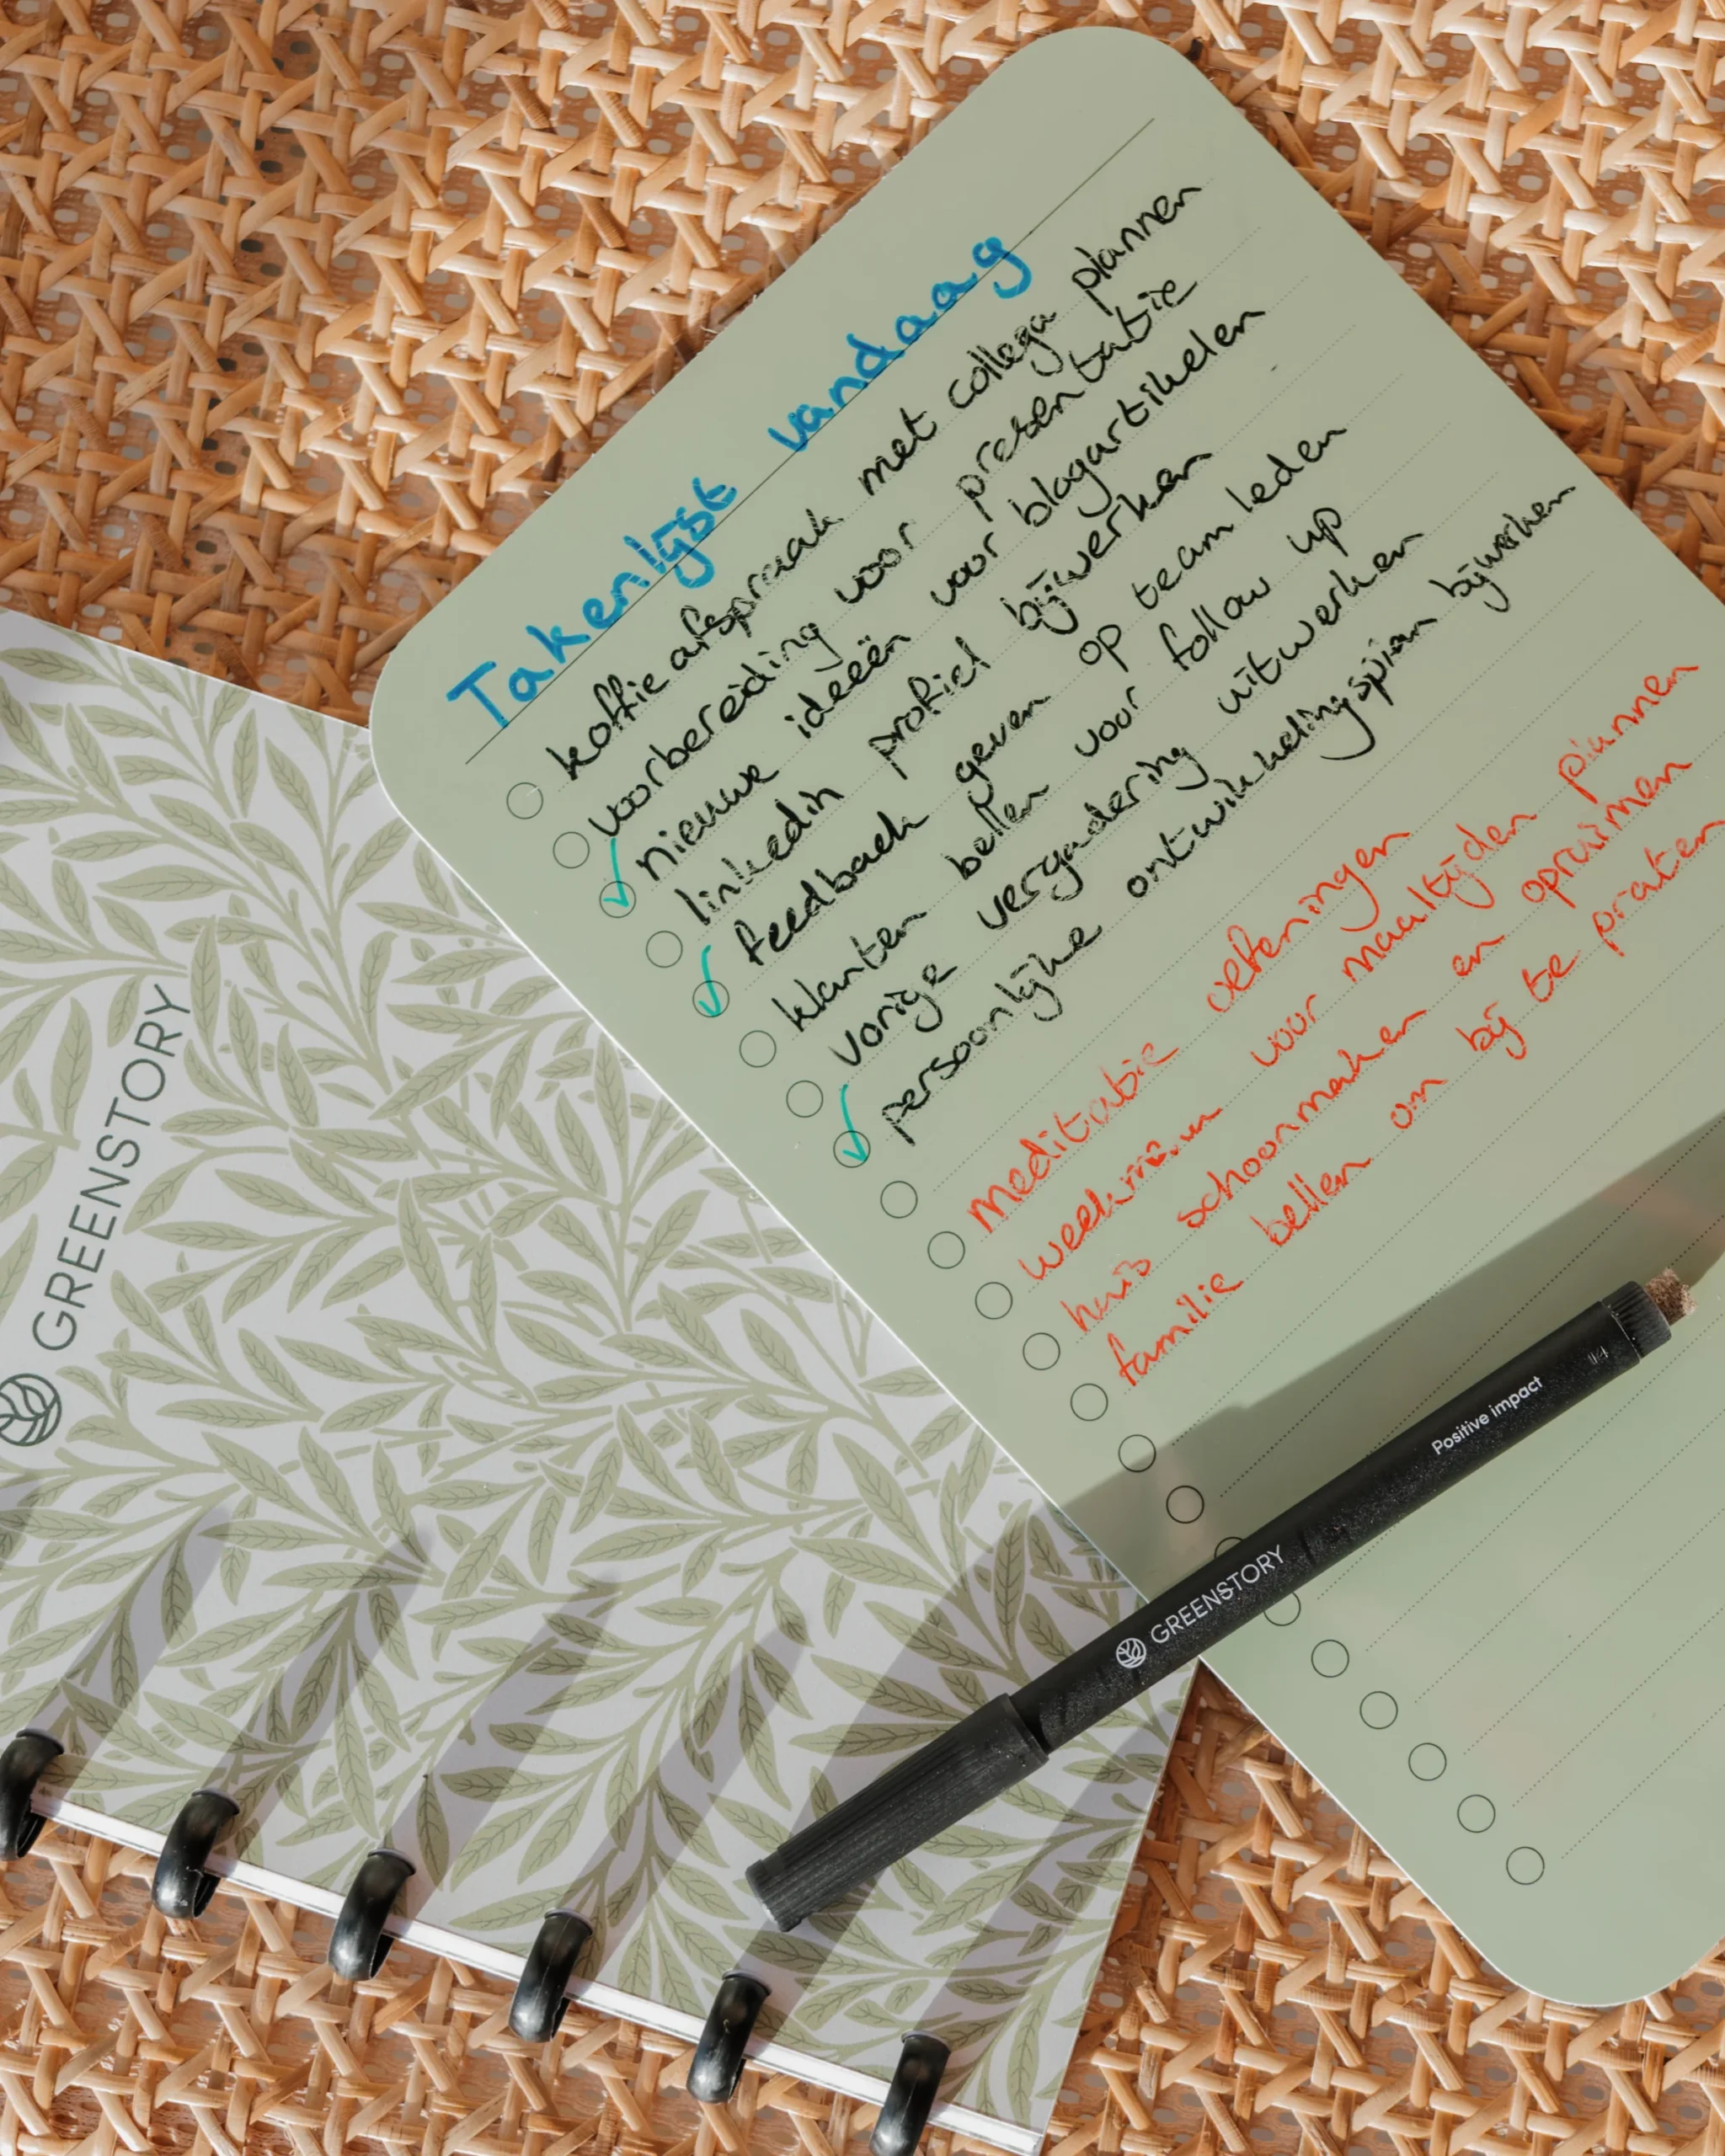 Takenlijst vandaag
koffie afspraak met collega plannen
voorbereiding voor presentatie
nieuwe ideeën voor blogartikelen
linkedin profiel bijwerken
feedback geven op team leden
klanten bellen voor follow up
vorige vergadering uitwerken
persoonlijke ontwikkelingsplan bijwerken
meditatie oefeningen
weekmenu voor maaltijden plannen
huis schoonmaken en opruimen
familie bellen om bij te praten
GREENSTORY
GREENSTORY Positive impact